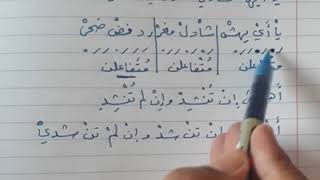 يا أيْ يهشْ شادلْ مغرْ رد فضْ ضحىْ
مُتْفاعلن مُتْفاعلن مُتَفاعلن
تُنْشِد وإنْ لم تُنْشِدِ
تنْ شد وإنْ لمْ تنْ شديْ